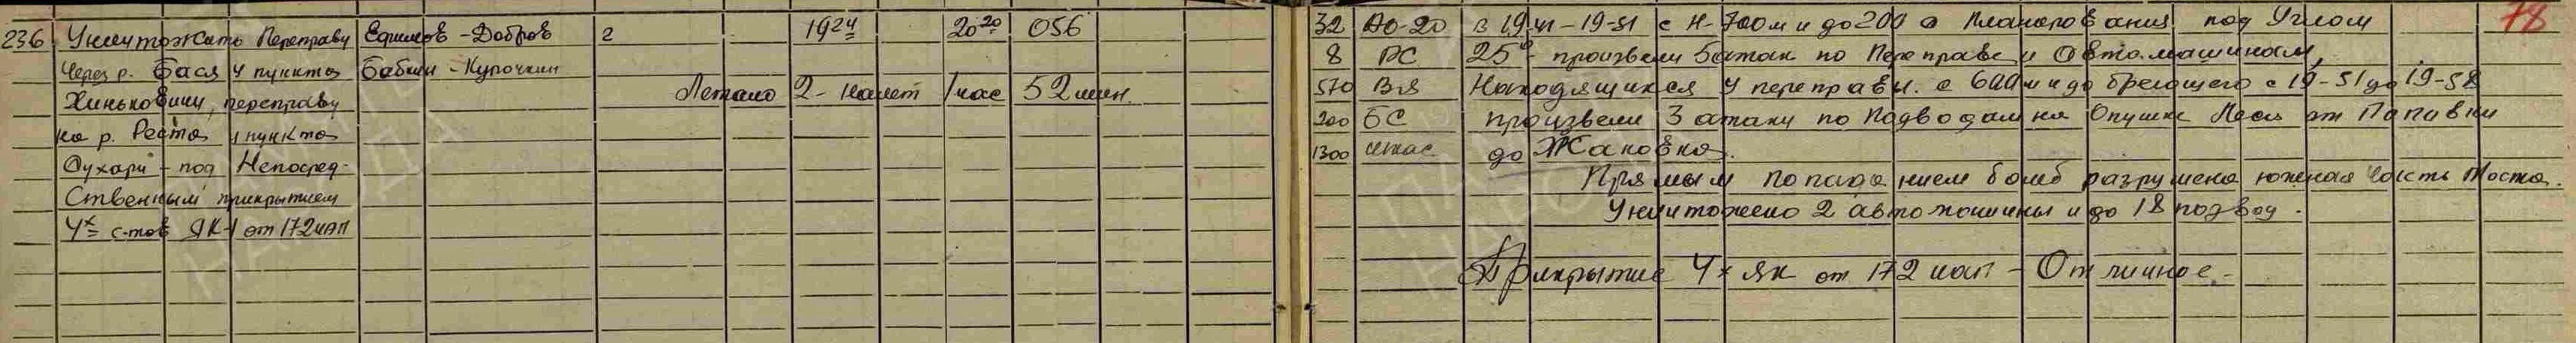 236 Уничтожить Переправу Ефимов - Добров 2 19 24 20 20 056
через р. Бася у пункта Бабкин - Курочкин
Хиньковичи, переправу Летало 2 - налет 1 час 52 мин.
на р. Реста у пункта
Сухари - под Непосред-
ственным прикрытием
4х с-тов ЯК-1 от 172 иап
32 АО-20 в 19-41 - 19-51 с Н-700 м и до 200 с планирования под углом 78
8 РС 25° произвели 5 атак по переправе и автомашинам,
570 ВЯ находящихся у переправы. с 600 м и до бреющего с 19-51 до 19-58
200 БС произвели 3 атаки по подводам на опушке леса от Поповки
1300 шкас до Жаковка.
Прямым попаданием бомб разрушена южная часть моста.
Уничтожено 2 автомашины и до 18 подвод.
Прикрытие 4х Як от 172 иап - Отличное.